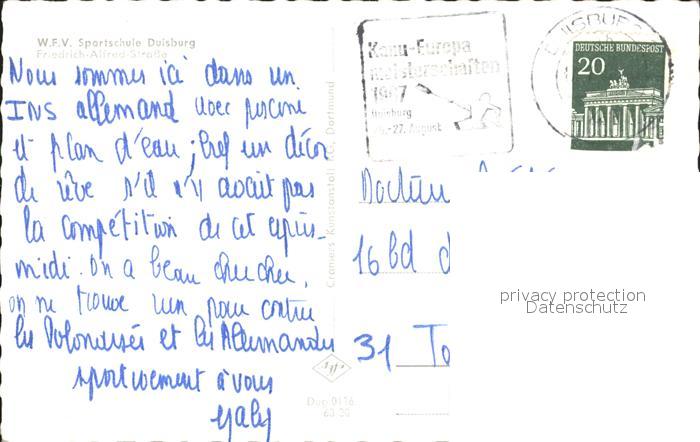 W.F.V. Sportschule Duisburg
Friedrich-Alfred-Straße
Nous sommes ici dans un
INS allemand avec piscine
et plan d'eau ; bref un décor
de rêve s'il n'y avait pas
la compétition de cet après-
midi. On a beau chercher,
on ne trouve rien pour contrer
les Polonaises et les Allemandes
sportivement à vous
Kanu-Europa
meisterschaften
1967
Duisburg
27. August
DUISBURG
DEUTSCHE BUNDESPOST
20
Docteur
16 bd d
31 To
Cramers Kunstanstalt KG, Dortmund
Agfa
Dup 0116
privacy protection
Datenschutz